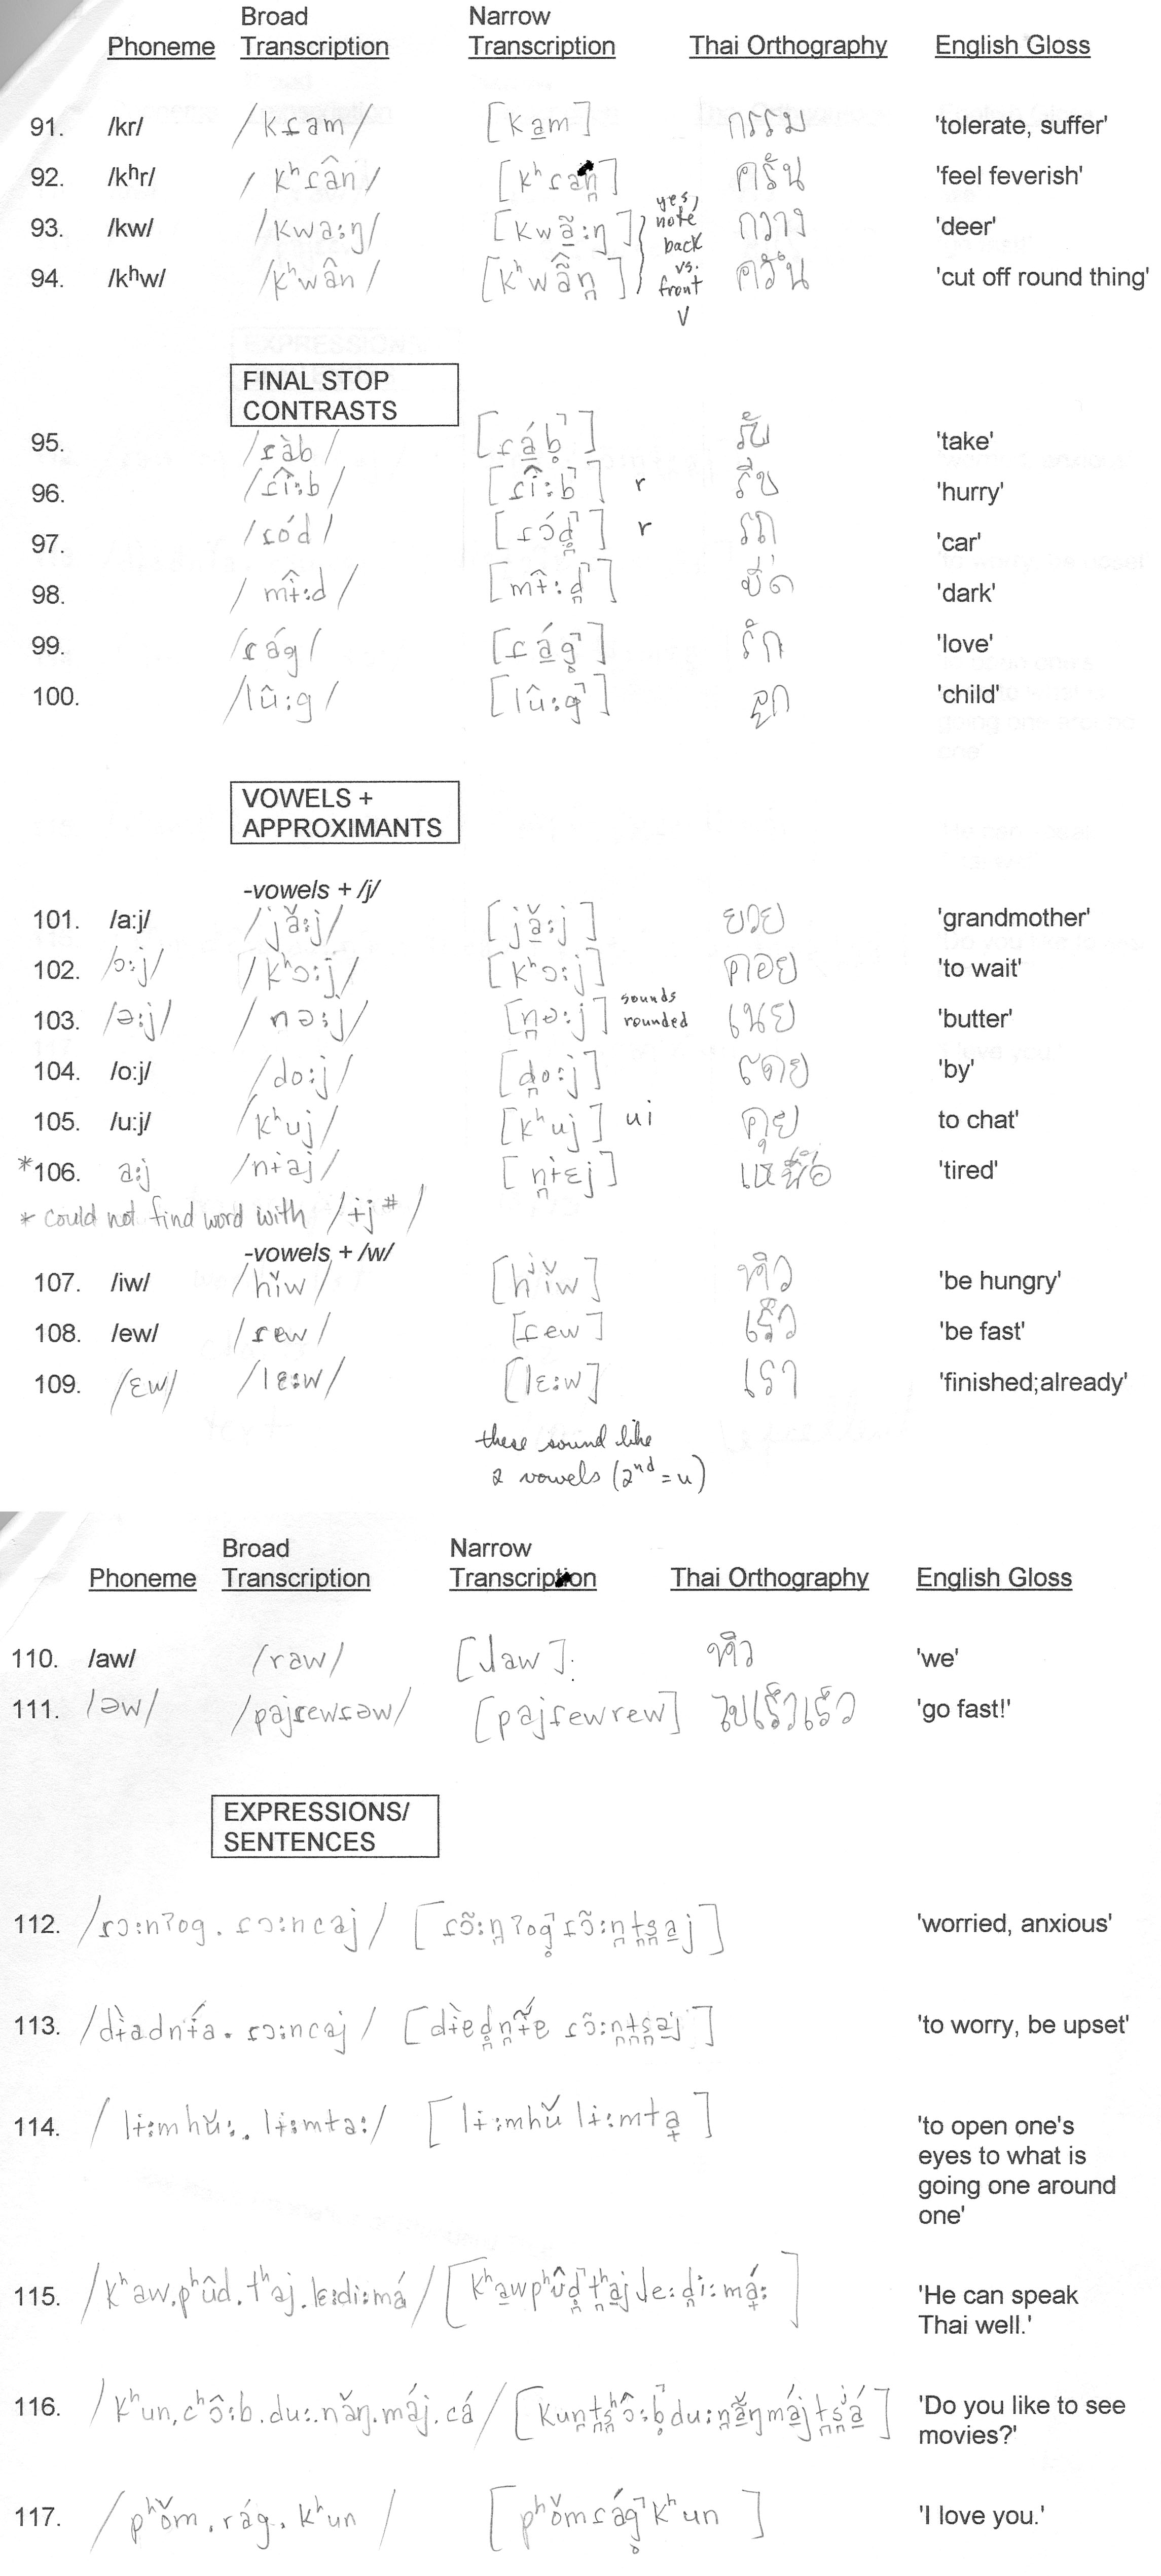 Broad Narrow
Phoneme Transcription Transcription Thai Orthography English Gloss
91. /kr/ /kɾam/ [ka̠m] กรรม 'tolerate, suffer'
92. /kʰr/ /kʰɾân/ [kʰɾan̪] ครั่น 'feel feverish'
93. /kw/ /kwa:ŋ/ [kwã̠:ŋ] กวาง 'deer'
94. /kʰw/ /kʰwân/ [kʰwã̂n̪] ควั่น 'cut off round thing'
yes,
note
back
vs.
front
V
FINAL STOP
CONTRASTS
95. /ɾàb/ [ɾá̠b̥̚] รับ 'take'
96. /ɾî:b/ [ɾî:b̚] r รีบ 'hurry'
97. /ɾód/ [ɾɔ́d̪̚] r รถ 'car'
98. /mɨ̂:d/ [mɨ̂:d̪̚] มืด 'dark'
99. /ɾág/ [ɾá̠g̥̚] รัก 'love'
100. /lû:g/ [lû:g̚] ลูก 'child'
VOWELS +
APPROXIMANTS
-vowels + /j/
101. /a:j/ /jǎ:j/ [jǎ̠:j] ยวย 'grandmother'
102. /ɔ:j/ /kʰɔ:j/ [kʰɔ:j] คอย 'to wait'
103. /ə:j/ /nə:j/ [n̪ɵ:j] sounds rounded เนย 'butter'
104. /o:j/ /do:j/ [d̪o:j] โดย 'by'
105. /u:j/ /kʰuj/ [kʰuj] ui คุย to chat'
*106. a:j /nɨaj/ [n̪ɨɛj] เหนื่อ 'tired'
* could not find word with /ɨj#/
-vowels + /w/
107. /iw/ /hǐw/ [hʲǐw] หิว 'be hungry'
108. /ew/ /ɾew/ [ɾew] เร็ว 'be fast'
109. /ɛw/ /lɛ:w/ [lɛ:w] เรา 'finished;already'
these sound like
2 vowels (2nd = u)
Broad Narrow
Phoneme Transcription Transcription Thai Orthography English Gloss
110. /aw/ /raw/ [ɹaw] หิว 'we'
111. /əw/ /pajɾewɾəw/ [pajɾewrew] ไปเร็วเร็ว 'go fast!'
EXPRESSIONS/
SENTENCES
112. /ɾɔ:nʔog.ɾɔ:ncaj/ [ɾɔ̃:n̪ʔog̥̚ɾɔ̃:n̪t̪s̪a̠j] 'worried, anxious'
113. /dɨ̀adnɨ́a.ɾɔ:ncaj/ [dɨ̀ɐd̪n̪ɨ̃́ɐ ɾɔ̃:n̪t̪s̪a̠j] 'to worry, be upset'
114. /lɨ:mhǔ:.lɨ:mta:/ [lɨ:mhǔ lɨ:mta̟] 'to open one's
eyes to what is
going one around
one'
115. /kʰaw.pʰûd.tʰaj.lɛ:di:má/ [kʰa̠wpʰûd̪̚t̪ʰa̠jle:d̪i:má̟:] 'He can speak
Thai well.'
116. /kʰun.cʰɔ̂:b.du:.nǎŋ.máj.cá/ [kun̪t̪s̪ʰɔ̂:b̥̚du:n̪ã̠̌ŋmá̠jt̪s̪ʲá̠] 'Do you like to see
movies?'
117. /pʰǒm.rág.kʰun/ [pʰǒmɾág̥̚kʰun] 'I love you.'